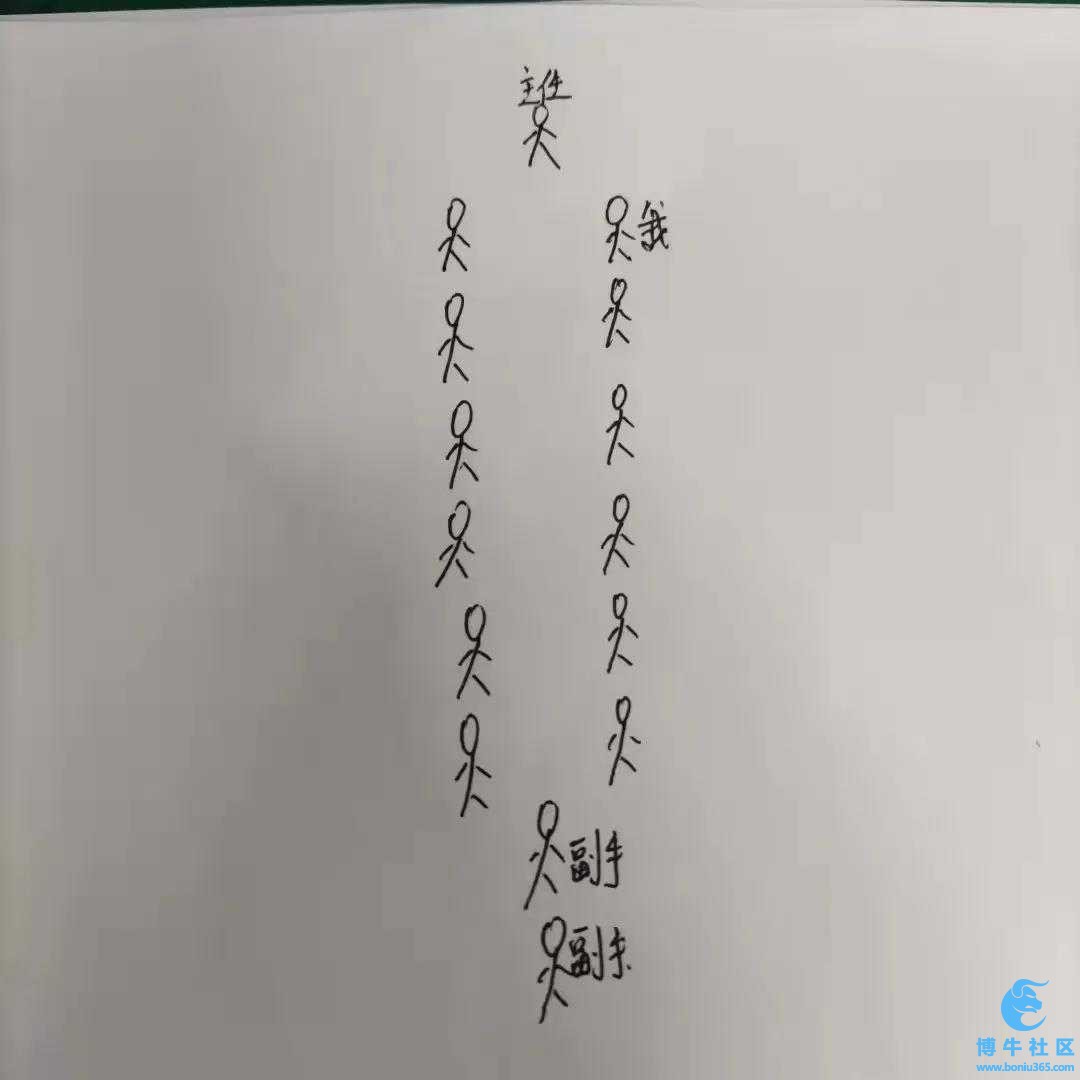 主任
我
副手
副手
博牛社区
www.boniu365.com